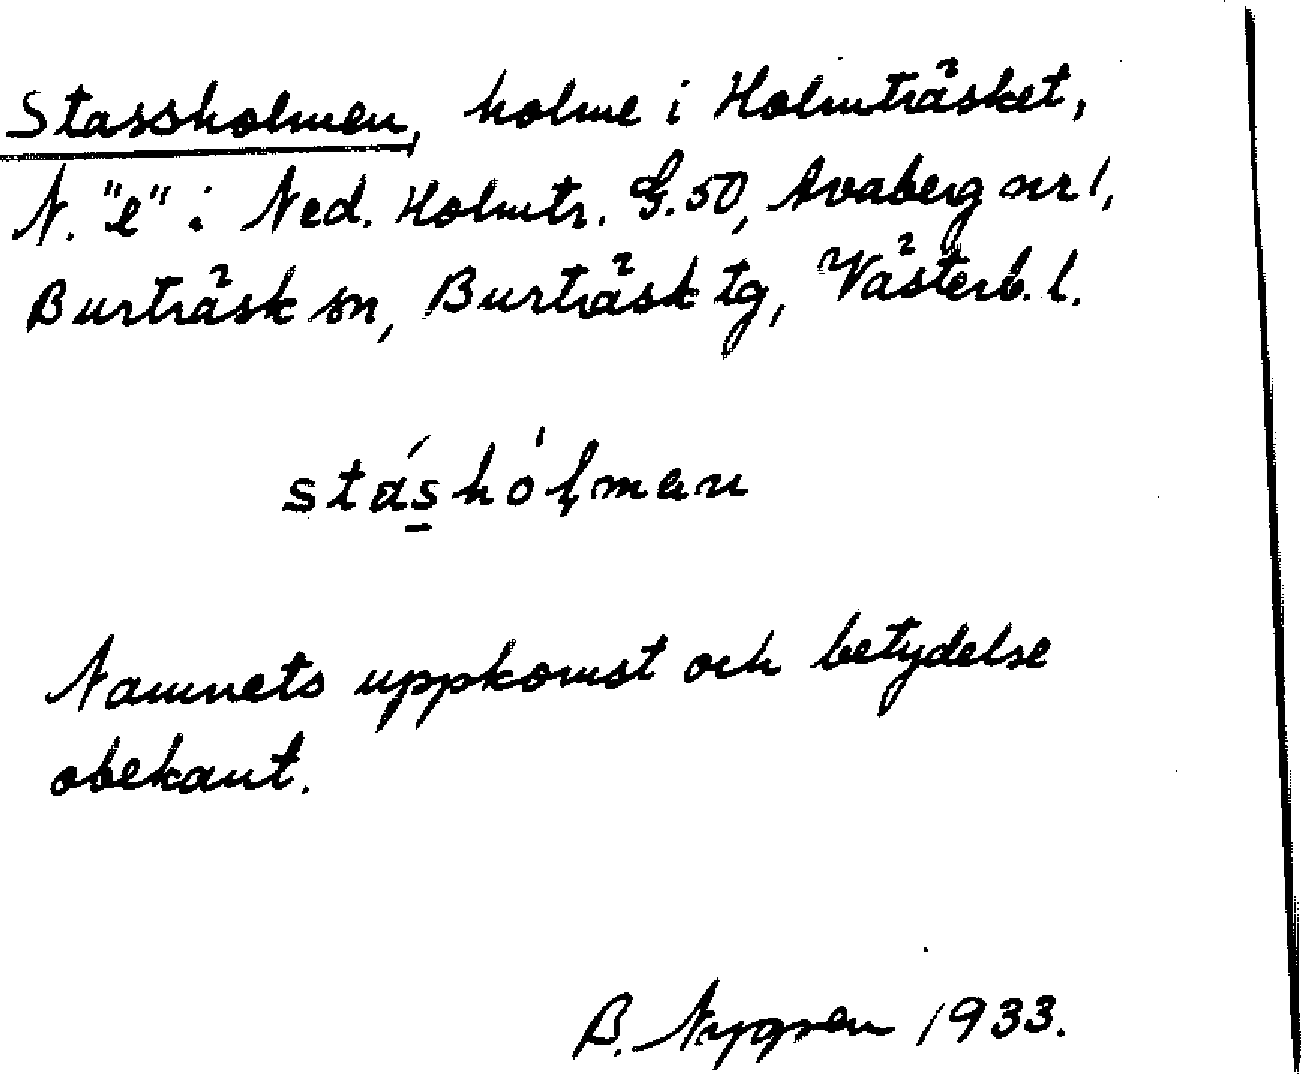 Stassholmen, holme i Holmträsket,
N. "e" i Ned. Holmtr. G. 50, Avaberg nr 1,
Burträsk sn, Burträsk tg, Västerb. l.
stáshólmen
Namnets uppkomst och betydelse
obekant.
B. Nygren 1933.